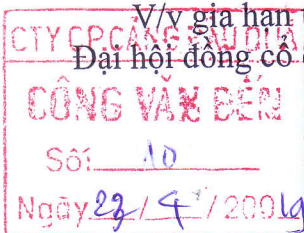 V/v gia han
Đại hội đồng cổ
CTY CP CẢNG
CÔNG VĂN ĐẾN
Số: 10
Ngày / 4 / 200